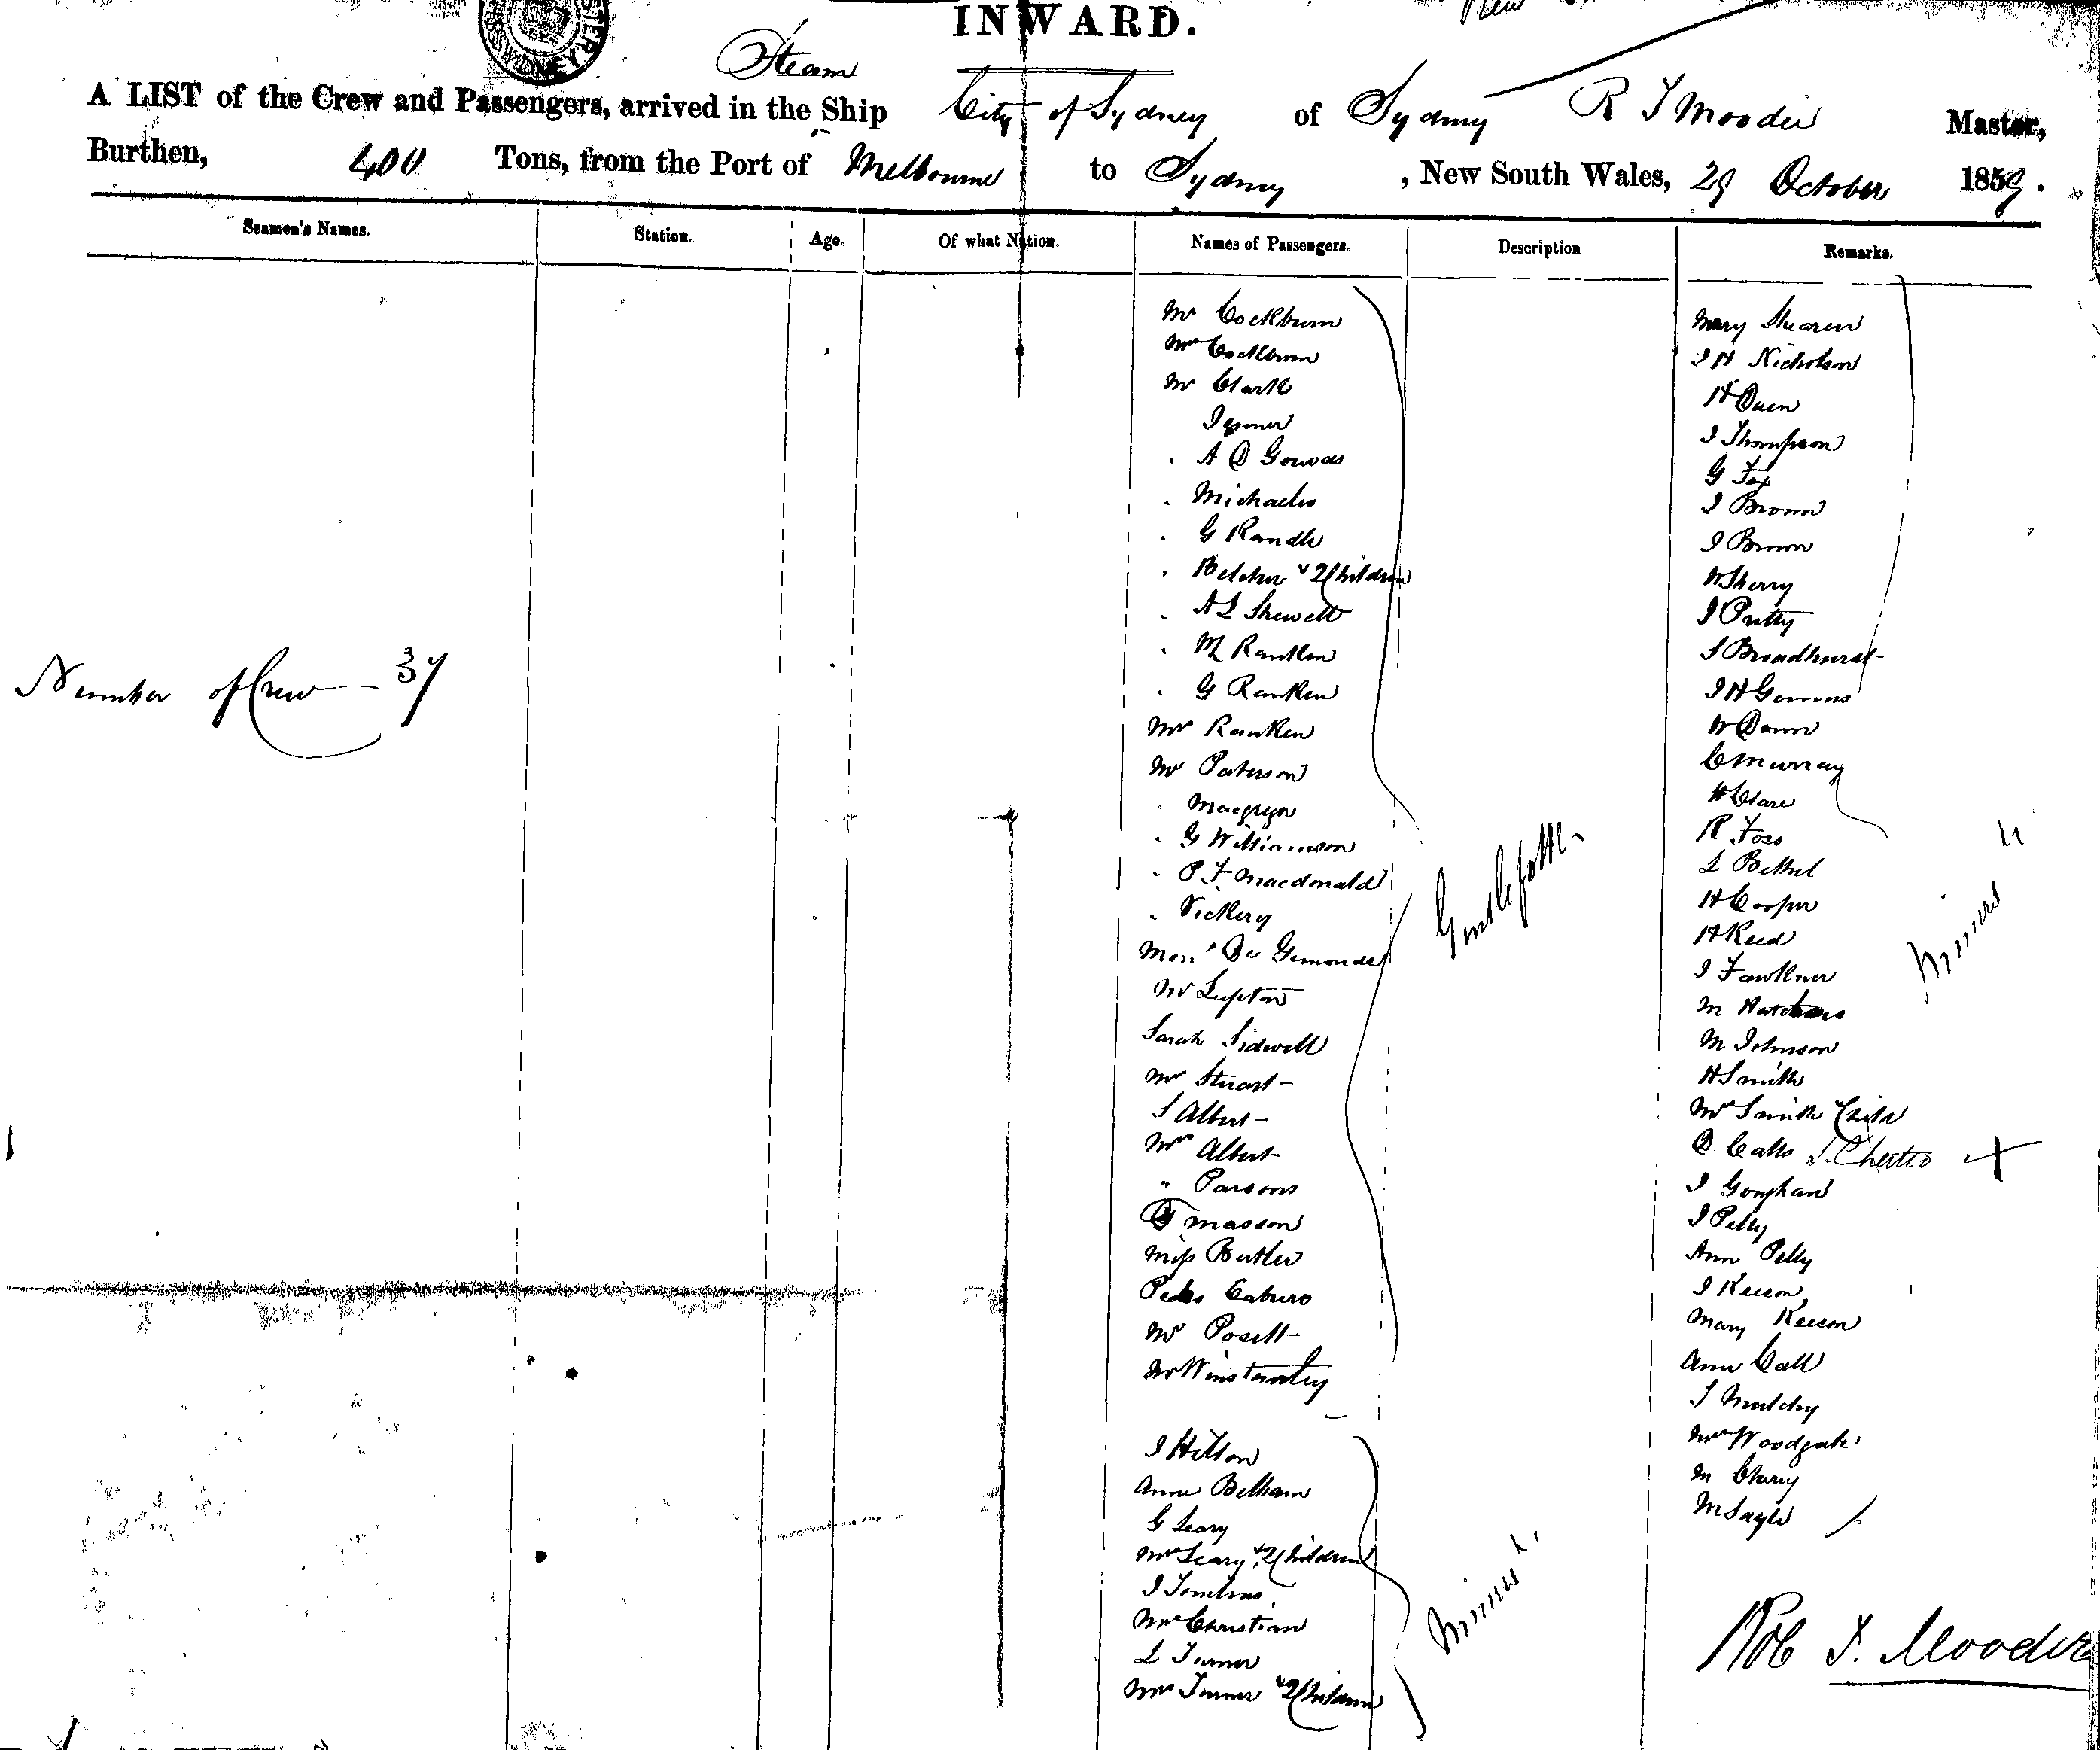 INWARD.
Steam
A LIST of the Crew and Passengers, arrived in the Ship City of Sydney of Sydney R T Moodie Master,
Burthen, 400 Tons, from the Port of Melbourne to Sydney , New South Wales, 29 October 1859.
Seamen's Names. Station. Age. Of what Nation. Names of Passengers. Description Remarks.
Number of Crew - 37
Mr Cockburn
Mrs Cockburn
Mr Clark
A D
Michaelis
G Randle
Belcher & 2 Children
A L Shewell
M Ranken
G Ranken
Mrs Ranken
Mr Paterson
Macgregor
G Wilkinson
P. F. Macdonald
Vickery
Mons De
Mr Lupton
Sarah Sidwell
Mr Stuart
S Albert
Mrs Albert
" Parsons
G Masson
Miss Butler
Pedro Cabrero
Mr
Mr Winstanley
Gentlefolk
J Hilton
Anne Belham
G Leary
Mrs Leary & 2 Children
J Tomlins
Mrs Christian
L Turner
Mrs Turner & 2 Children
Miners
Mary Shearen
J H Nicholson
H Owen
J Thompson
G Fox
J Brown
J Brown
W Sherry
J Pretty
S Broadhurst
J H
W Dawn
C Murray
H Clare
R Foss
L Bethel
H Cooper
H Reed
J Fawkner
M
M Johnson
H Smith
Mrs Smith & Child
J
J Pelly
Ann Pelly
J Reeson
Mary Reeson
Ann Call
T
Mrs Woodgate
M Cherry
M Sayle
Miners
Rob T. Moodie